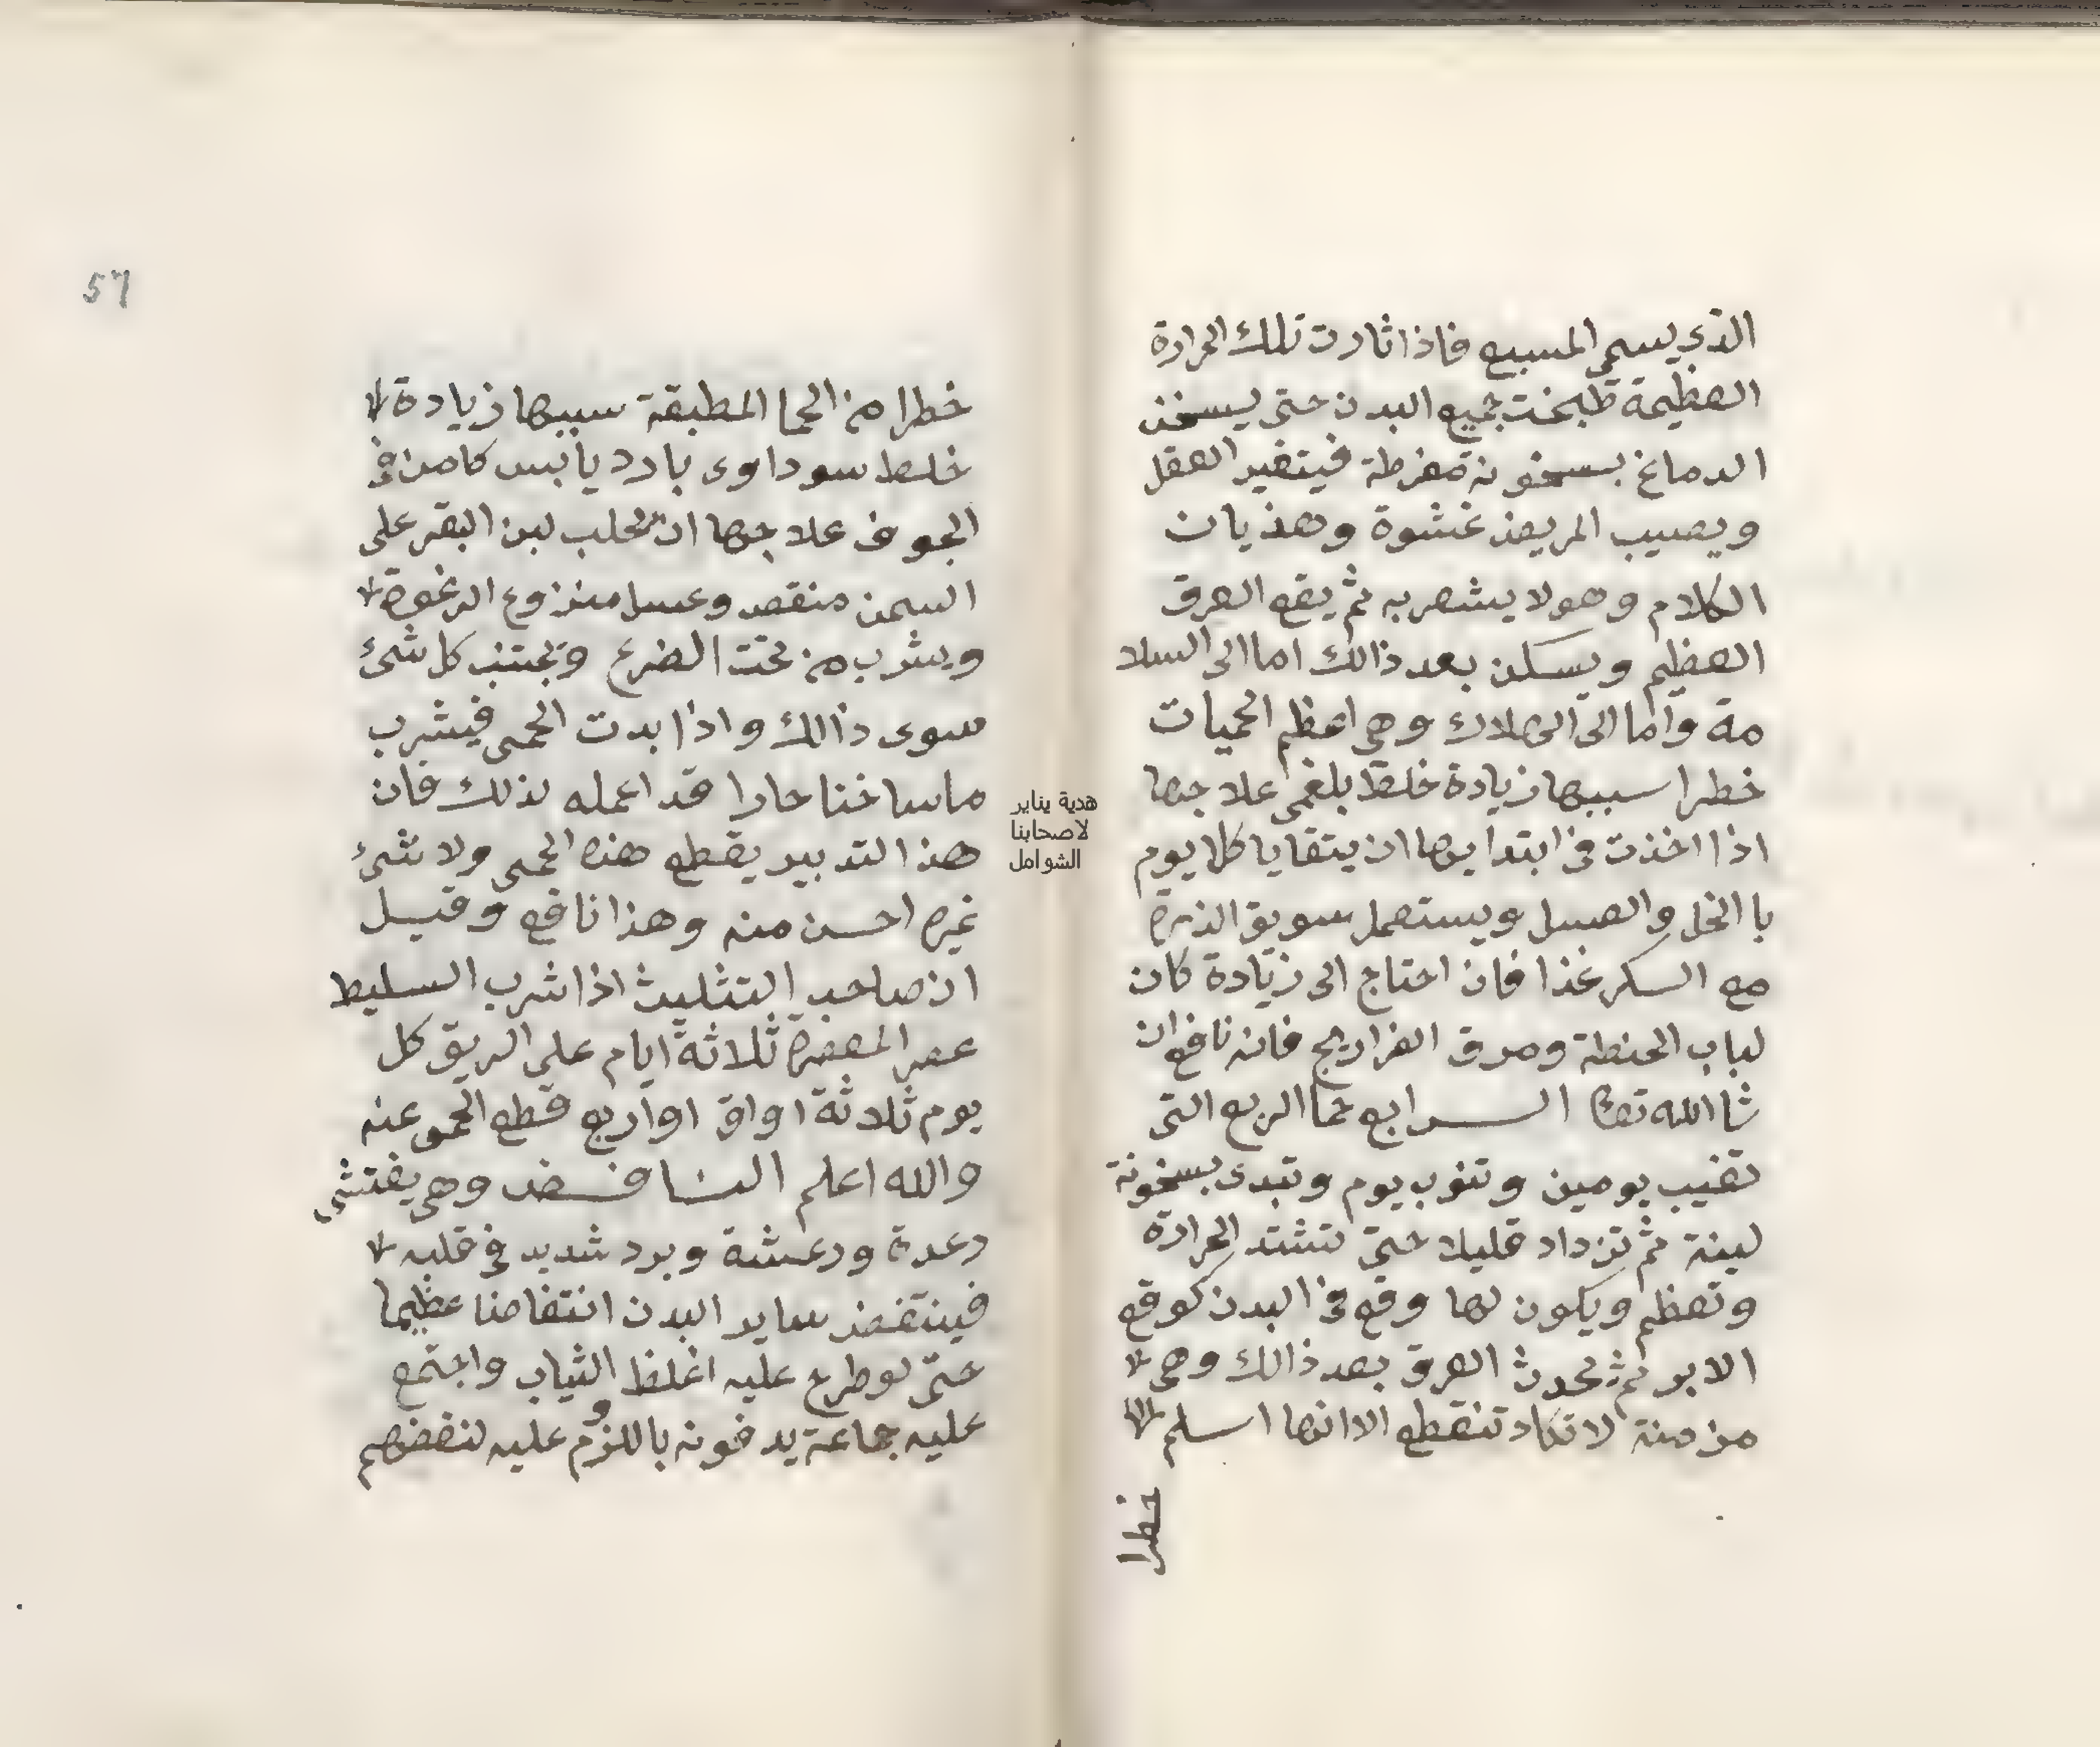 الذي يسمى المسبع فاذا ثارت تلك الحرارة
العظيمة طبخت جميع البدن حتى يسخن
الدماغ بسخونة مفرطة فيتغير العقل
ويصيب المريض غشوة وهذيان
الكلام وهو لا يشعر به ثم يقع العرق
العظيم ويسكن بعد ذالك اما الى السلا
مة واما الى الهلاك وهي اعظم الحميات
خطرا سببها زيادة خلط بلغمي علاجها
اذا اخذت في ابتدايها ان يتقايا كل يوم
با الخل والعسل ويستعمل سويق الذرة
مع السكر غذا فان احتاج الى زيادة كان
لباب الحنطة ومرق الفراريج فانه نافع ان
شا الله تعالى الرابع حما الربع التي
تغيب يومين وتنوب يوم وتبدى بسخونة
لينة ثم تزداد قليلا حتى تشتد الحرارة
وتعظم ويكون لها وقع في البدن كوقع
الابر ثم يحدث العرق بعد ذالك وهي
مزمنة لا تكاد تنقطع الا انها اسلم
خطرا
57
خطرا من الحما المطبقة سببها زيادة
خلط سوداوى بارد يابس كامن في
الجوف علاجها ان يحلب لبن البقر على
السمن منقصد وعسل منزوع الرغوة
ويشرب من تحت الضرع وتجتنب كل شئ
سوى ذالك واذا بدت الحمى فيشرب
ما ساخنا حارا قد اعمله لذلك فان
هذ التدبير يقطع هذه الحمى ولا شئ
غيره احسن منه وهذا نافع وقيل
ان صاحب التثليث اذا شرب السليط
عصر المعصرة ثلاثة ايام على الريق كل
يوم ثلاثة اواق او اربع قطع الحمى عنه
والله اعلم النافض وهي يفتشى
رعدة ورعشة وبرد شديد في قلبه
فينتفض ساير البدن انتفاضا عظيما
حتى لو طرح عليه اغلظ الثياب واجتمع
عليه جماعة يدفونه باللزوم عليه لنفضهم
هدية يناير
لاصحابنا
الشوامل